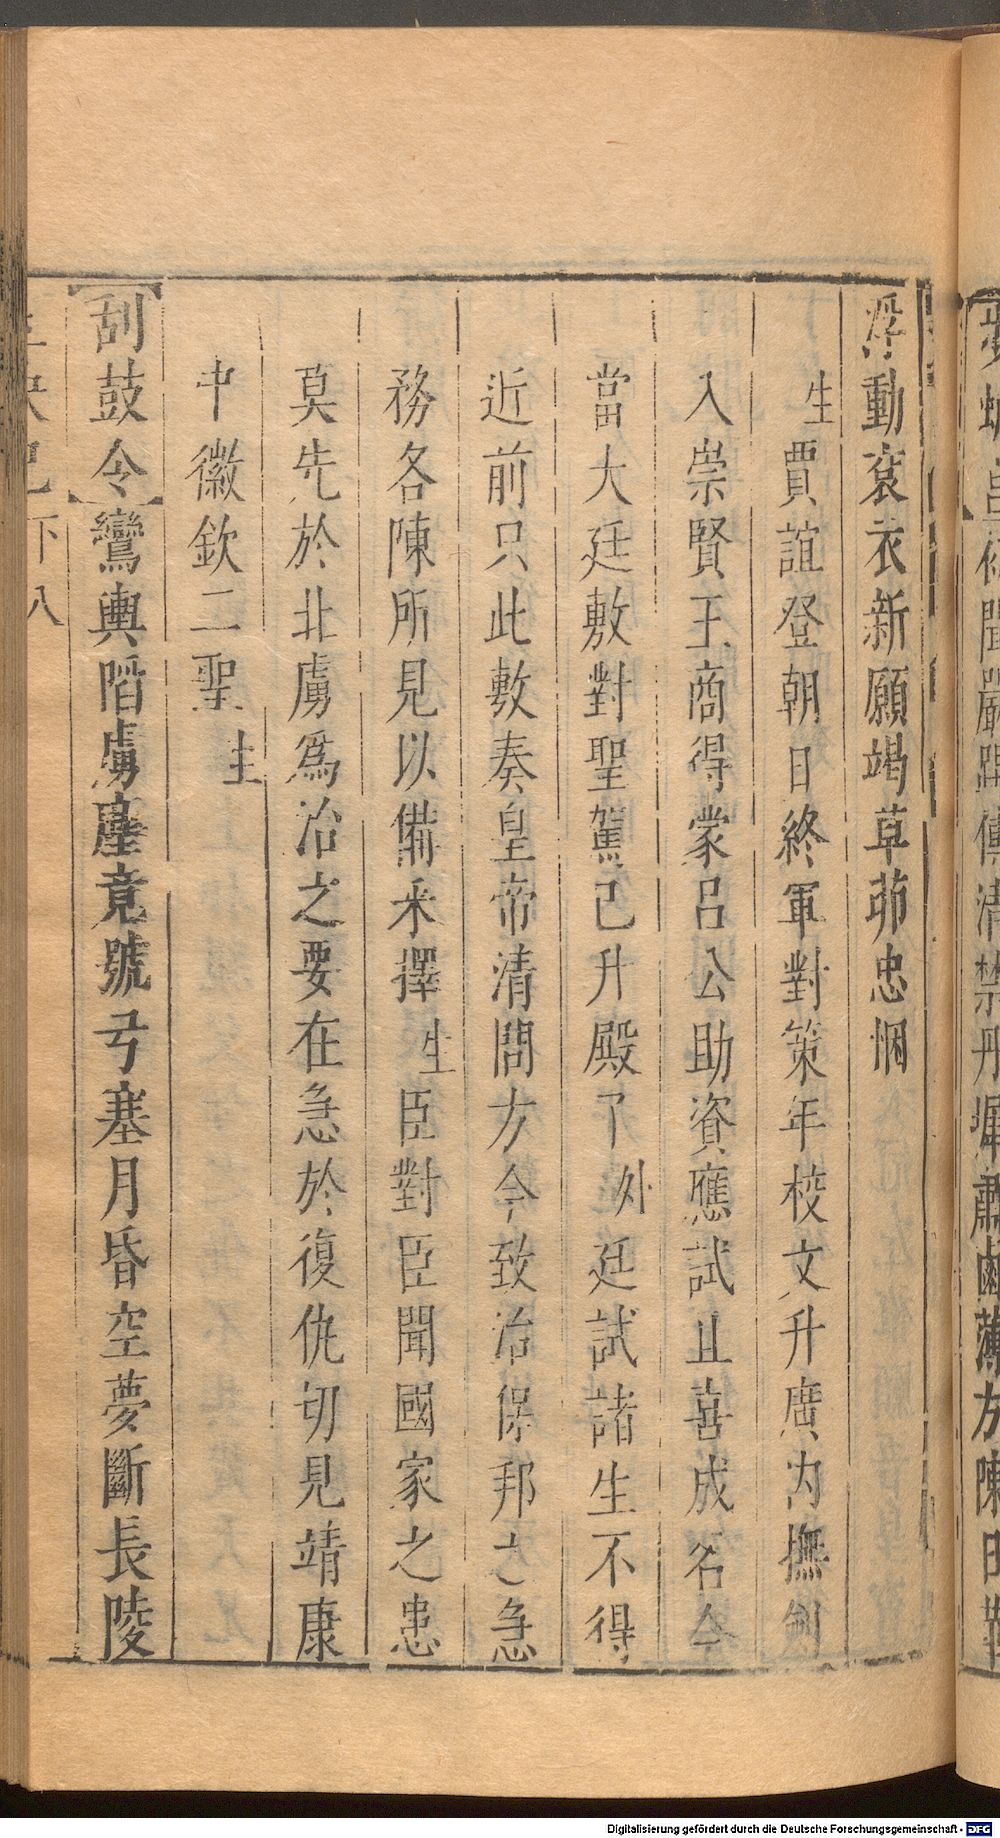 浮動衮衣新願竭草茆忠悃
生賈誼登朝日終軍對策年校文升廣内撫劍
入崇賢王商得蒙呂公助資應試且喜成名今
當大廷敷對聖駕已升殿了外廷試諸生不得
近前只此敷奏皇帝清問方今致治保邦之急
務各陳所見以備采擇生臣對臣聞國家之患
莫先於北虜爲治之要在急於復仇切見靖康
中徽欽二聖 主
【刮鼓令】鸞輿蹈虜塵竟號弓塞月昏空夢斷長陵
下八
Digitalisierung gefördert durch die Deutsche Forschungsgemeinschaft - DFG